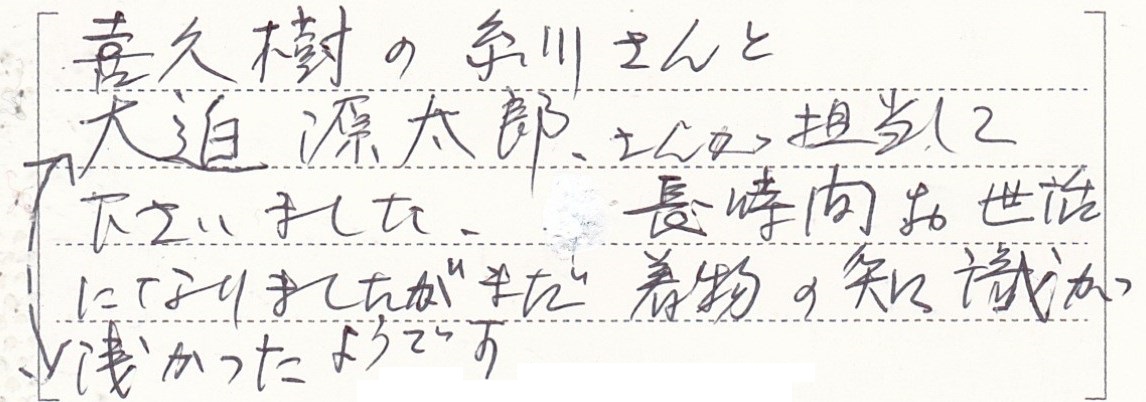 喜久樹の糸川さんと
大迫源太郎、さんが担当して
下さいました、長時間お世話
になりましたがまだ着物の知識が
浅かったようです